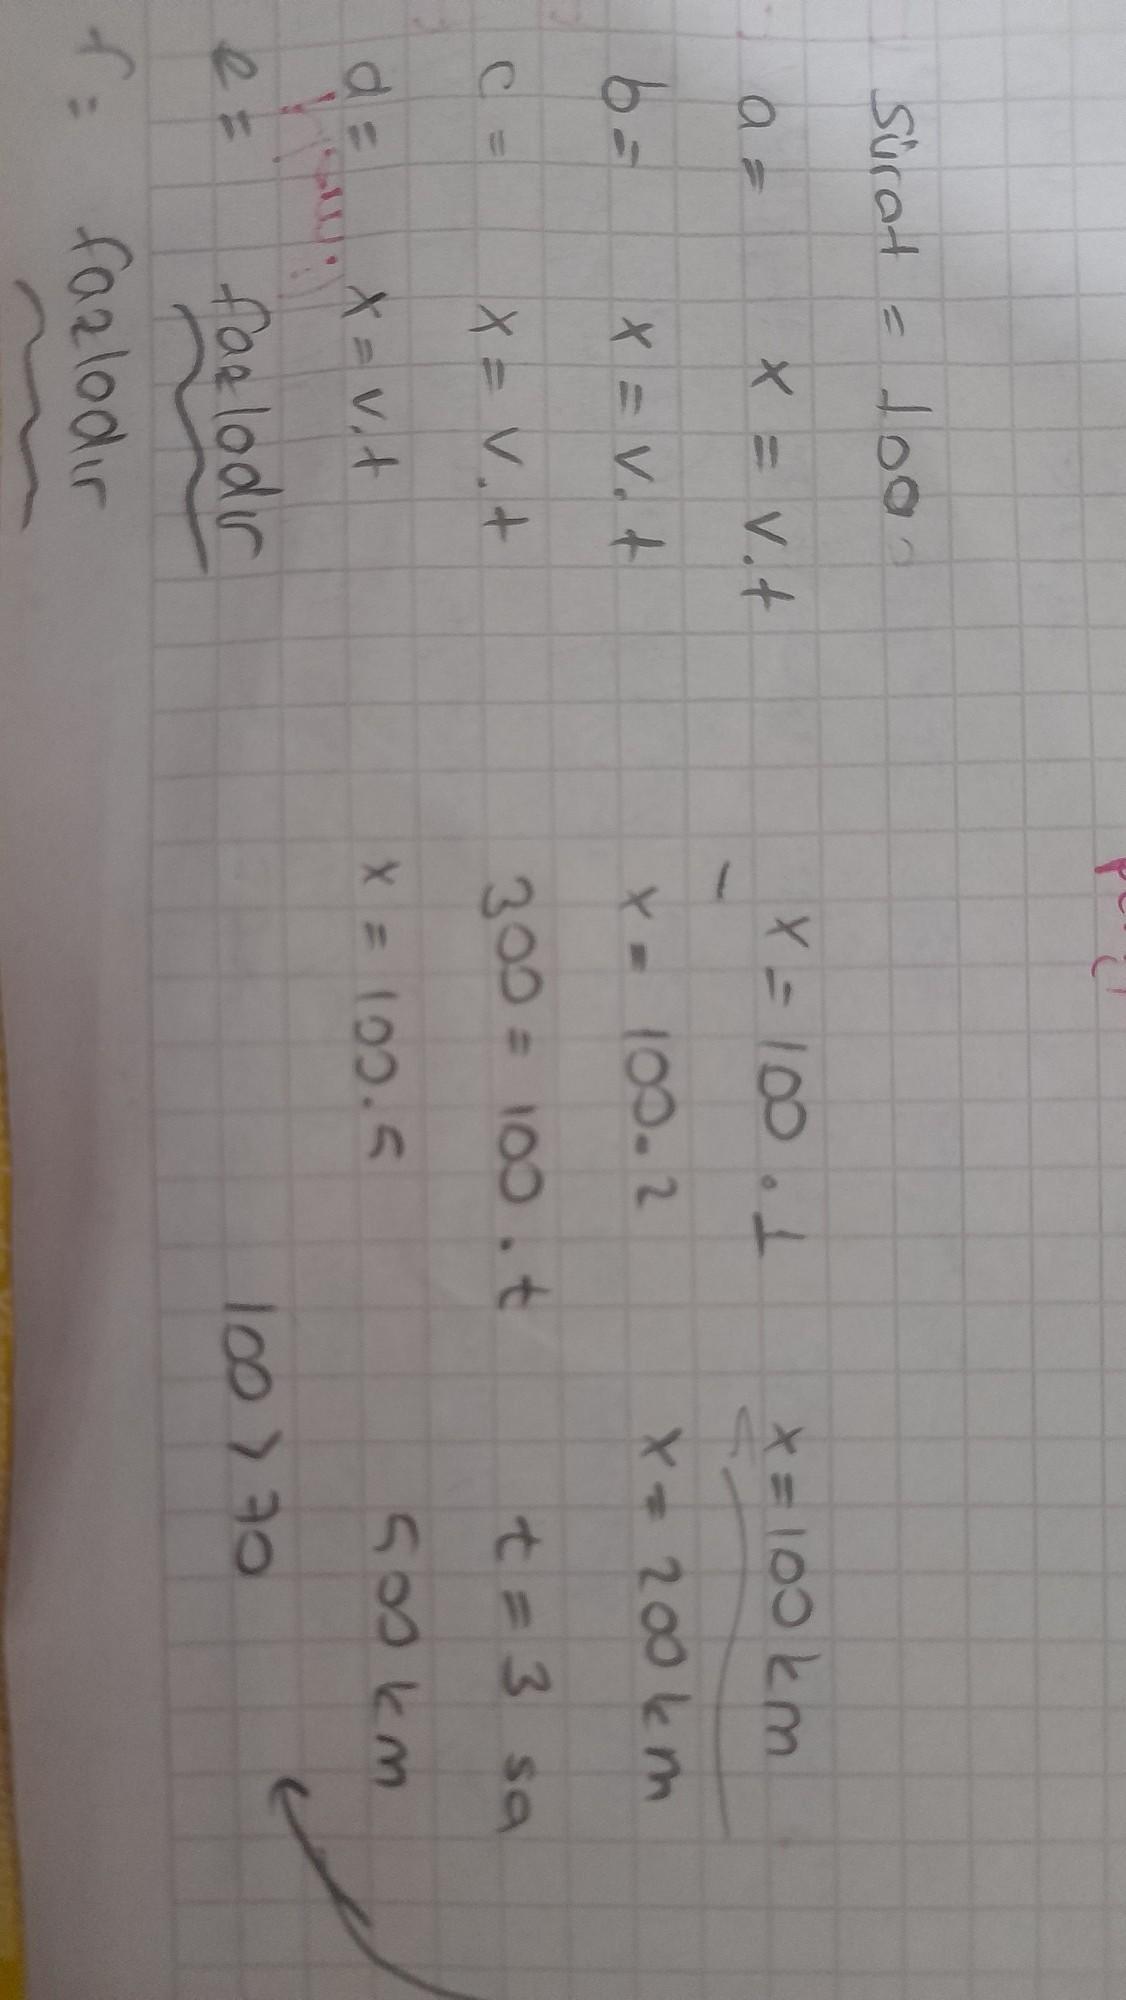 Sürat = 100
a = x = v.t x = 100.1 x = 100km
b = x = v.t x = 100.2 x = 200km
c = x = v.t 300 = 100.t t = 3 sa
d = x = v.t x = 100.5 500 km
e = fazladır 100 > 70
f = fazladır